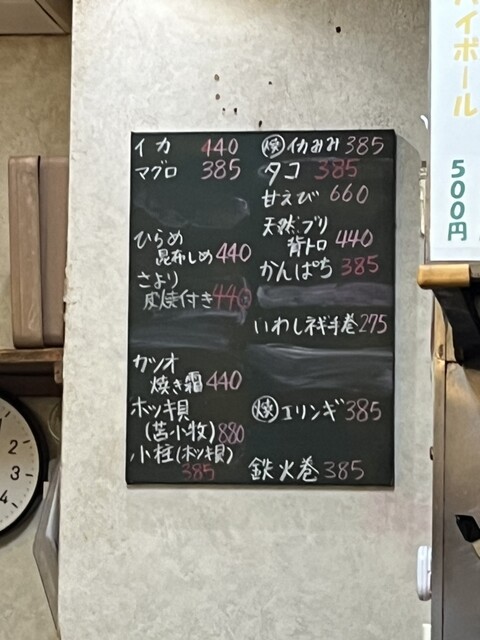 イカ 440
マグロ 385
ひらめ
昆布しめ 440
さより
皮焼付き 440
カツオ
焼き霜 440
ホッキ貝
(苫小牧) 880
小柱(ホッキ貝)
385
焼 イカみみ 385
タコ 385
甘えび 660
天然ブリ
背トロ 440
かんぱち 385
いわしネギ手巻 275
焼 エリンギ 385
鉄火巻 385
ハイボール
500円
2
3
4